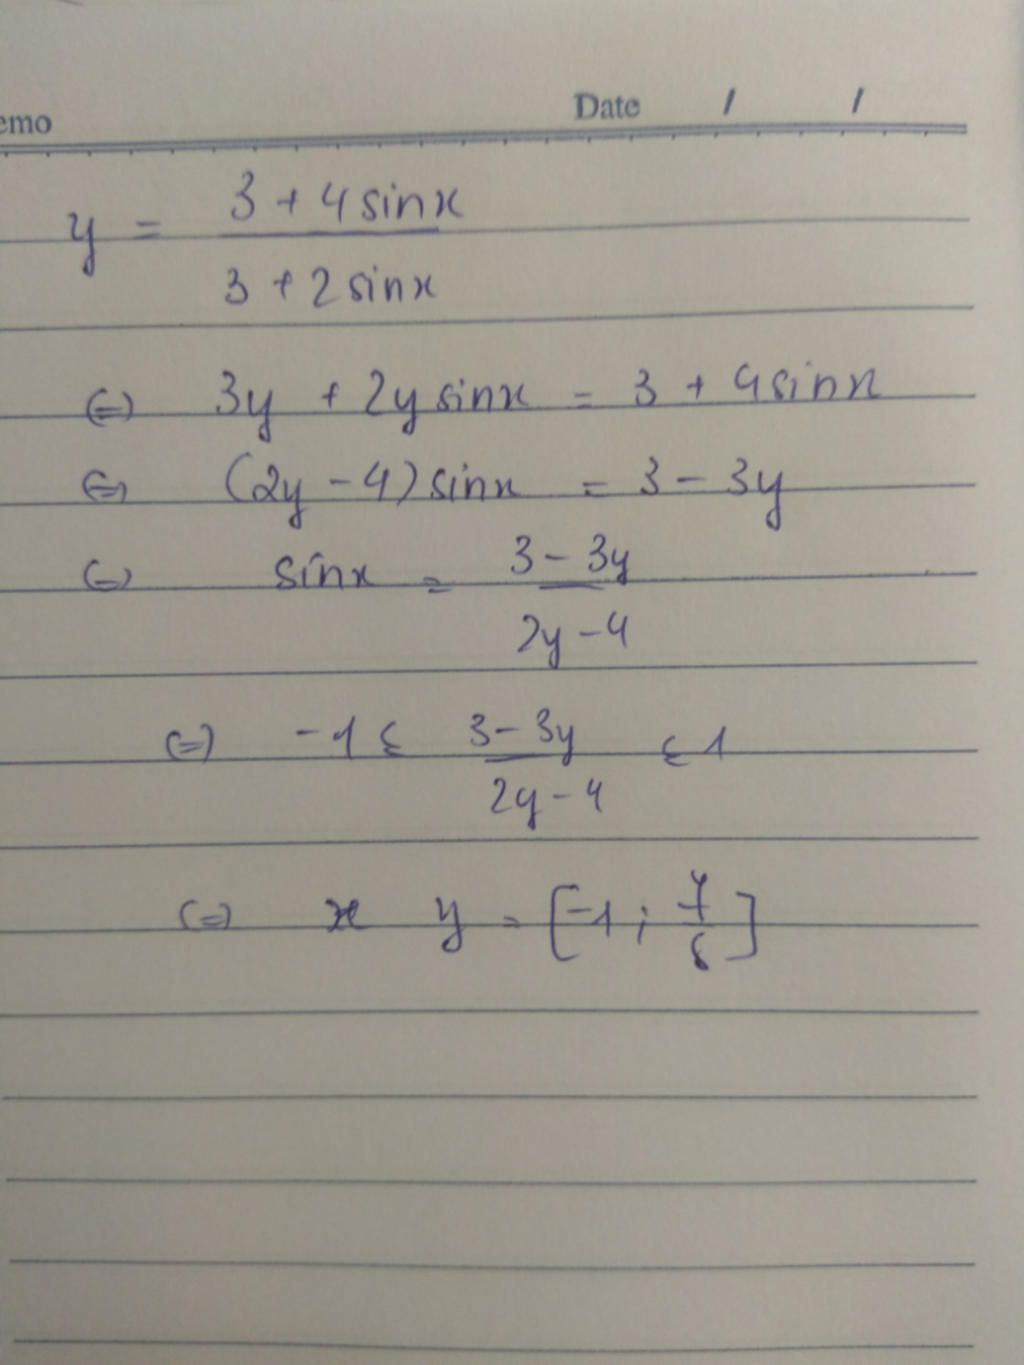 emo Date / /
y = \frac{3 + 4 sinx}{3 + 2 sinx}
(=) 3y + 2y sinx = 3 + 4 sinx
(=) (2y - 4) sinx = 3 - 3y
(=) sinx = \frac{3 - 3y}{2y - 4}
(=) -1 ≤ \frac{3 - 3y}{2y - 4} ≤ 1
(=) y = [-1;